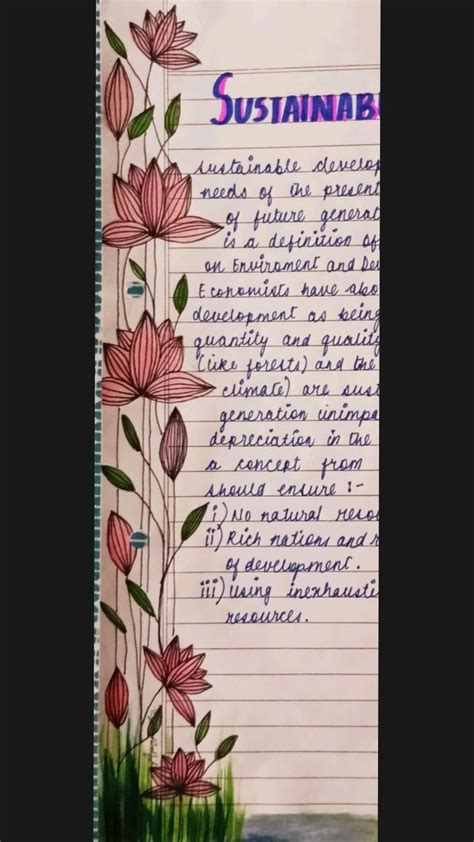 SUSTAINAB
sustainable develop
needs of the present
of future generat
is a definition of
on Enviroment and De
Economists have also
development as being
quantity and quality
(like forests) and the
climate) are sust
generation unimpa
depreciation in the
a concept from
should ensure :-
i) No natural reso
ii) Rich nations and
of development.
iii) Using inexhausti
resources.